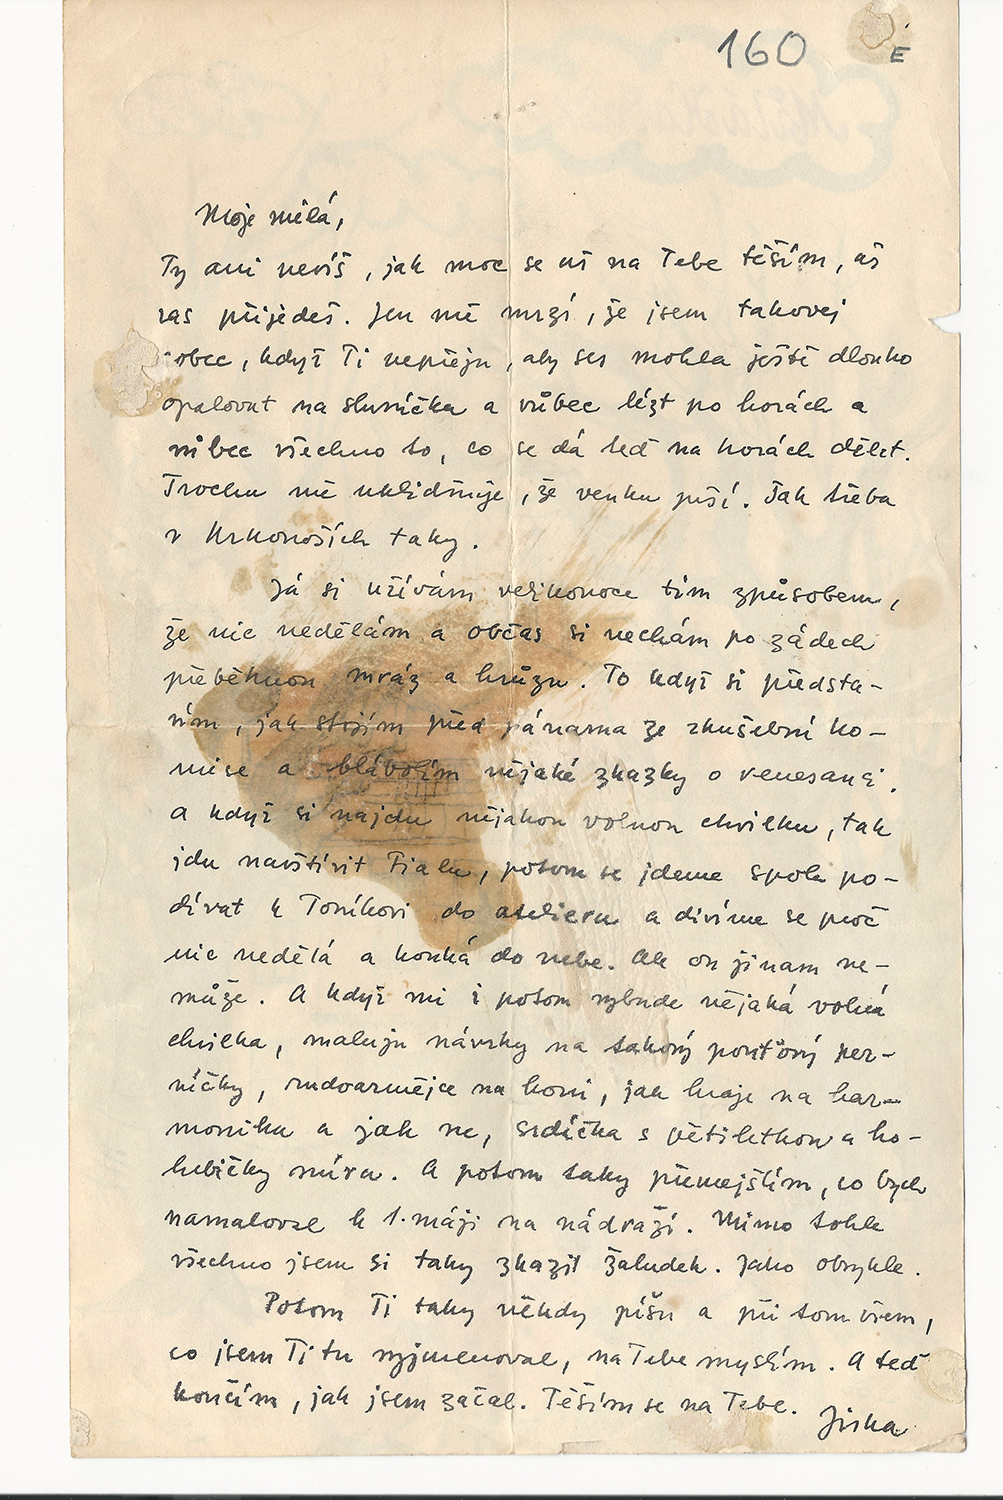 160
E
Moje milá,
Ty ani nevíš, jak moc se už na Tebe těším, až
zas přijedeš. Jen mě mrzí, že jsem takovej
sobec, když Ti nepřeju, aby ses mohla ještě dlouho
opalovat na sluníčku a vůbec lézt po horách a
vůbec všechno to, co se dá teď na horách dělat.
Trochu mě uklidňuje, že venku prší. Tak třeba
v Krkonoších taky.
Já si užívám velikonoce tím způsobem,
že nic nedělám a občas si nechám po zádech
přeběhnou mráz a hrůzu. To když si předsta-
vím, jak stojím před pánama ze zkušební ko-
mise a blábolím nějaké zkazky o renesanci.
A když si najdu nějakou volnou chvilku, tak
jdu navštívit Fialu, potom se jdeme spolu po-
dívat k Toníkovi do atelieru a divíme se proč
nic nedělá a kouká do nebe. Ale on jinam ne-
může. A když mi i potom vybude nějaká volná
chvilka, maluju návrhy na takový pouťový per-
níčky, rudoarmějce na koni, jak hraje na har-
moniku a jak ne, srdíčka s pětiletkou a ho-
lubičky míru. A potom taky přemejšlím, co bych
namaloval k 1. máji na nádraží. Mimo tohle
všechno jsem si taky zkazil žaludek. Jako obvykle.
Potom Ti taky někdy píšu a při tom všem,
co jsem Ti tu vyjmenoval, na Tebe myslím. A teď
končím, jak jsem začal. Těším se na Tebe.
Jirka